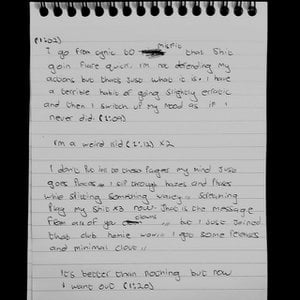 (1:02)
I go from cynic to misfit that shit
goin fiare quick. I'm not defending my
actions but thats just what it is. I have
a terrible habit of going slightly erratic
and then I switch up my mood as if I
never did. (1:09)
I'm a weird kid (1:12) x2
I don't put ink to these pages my mind just
goes places I sift through hazes and
while sitting something
play my shit x3 now that is the message
from all of you clowns but I just joined
that club homie I got some
and minimal clout
It's better than nothing but now
I want out (1:20)